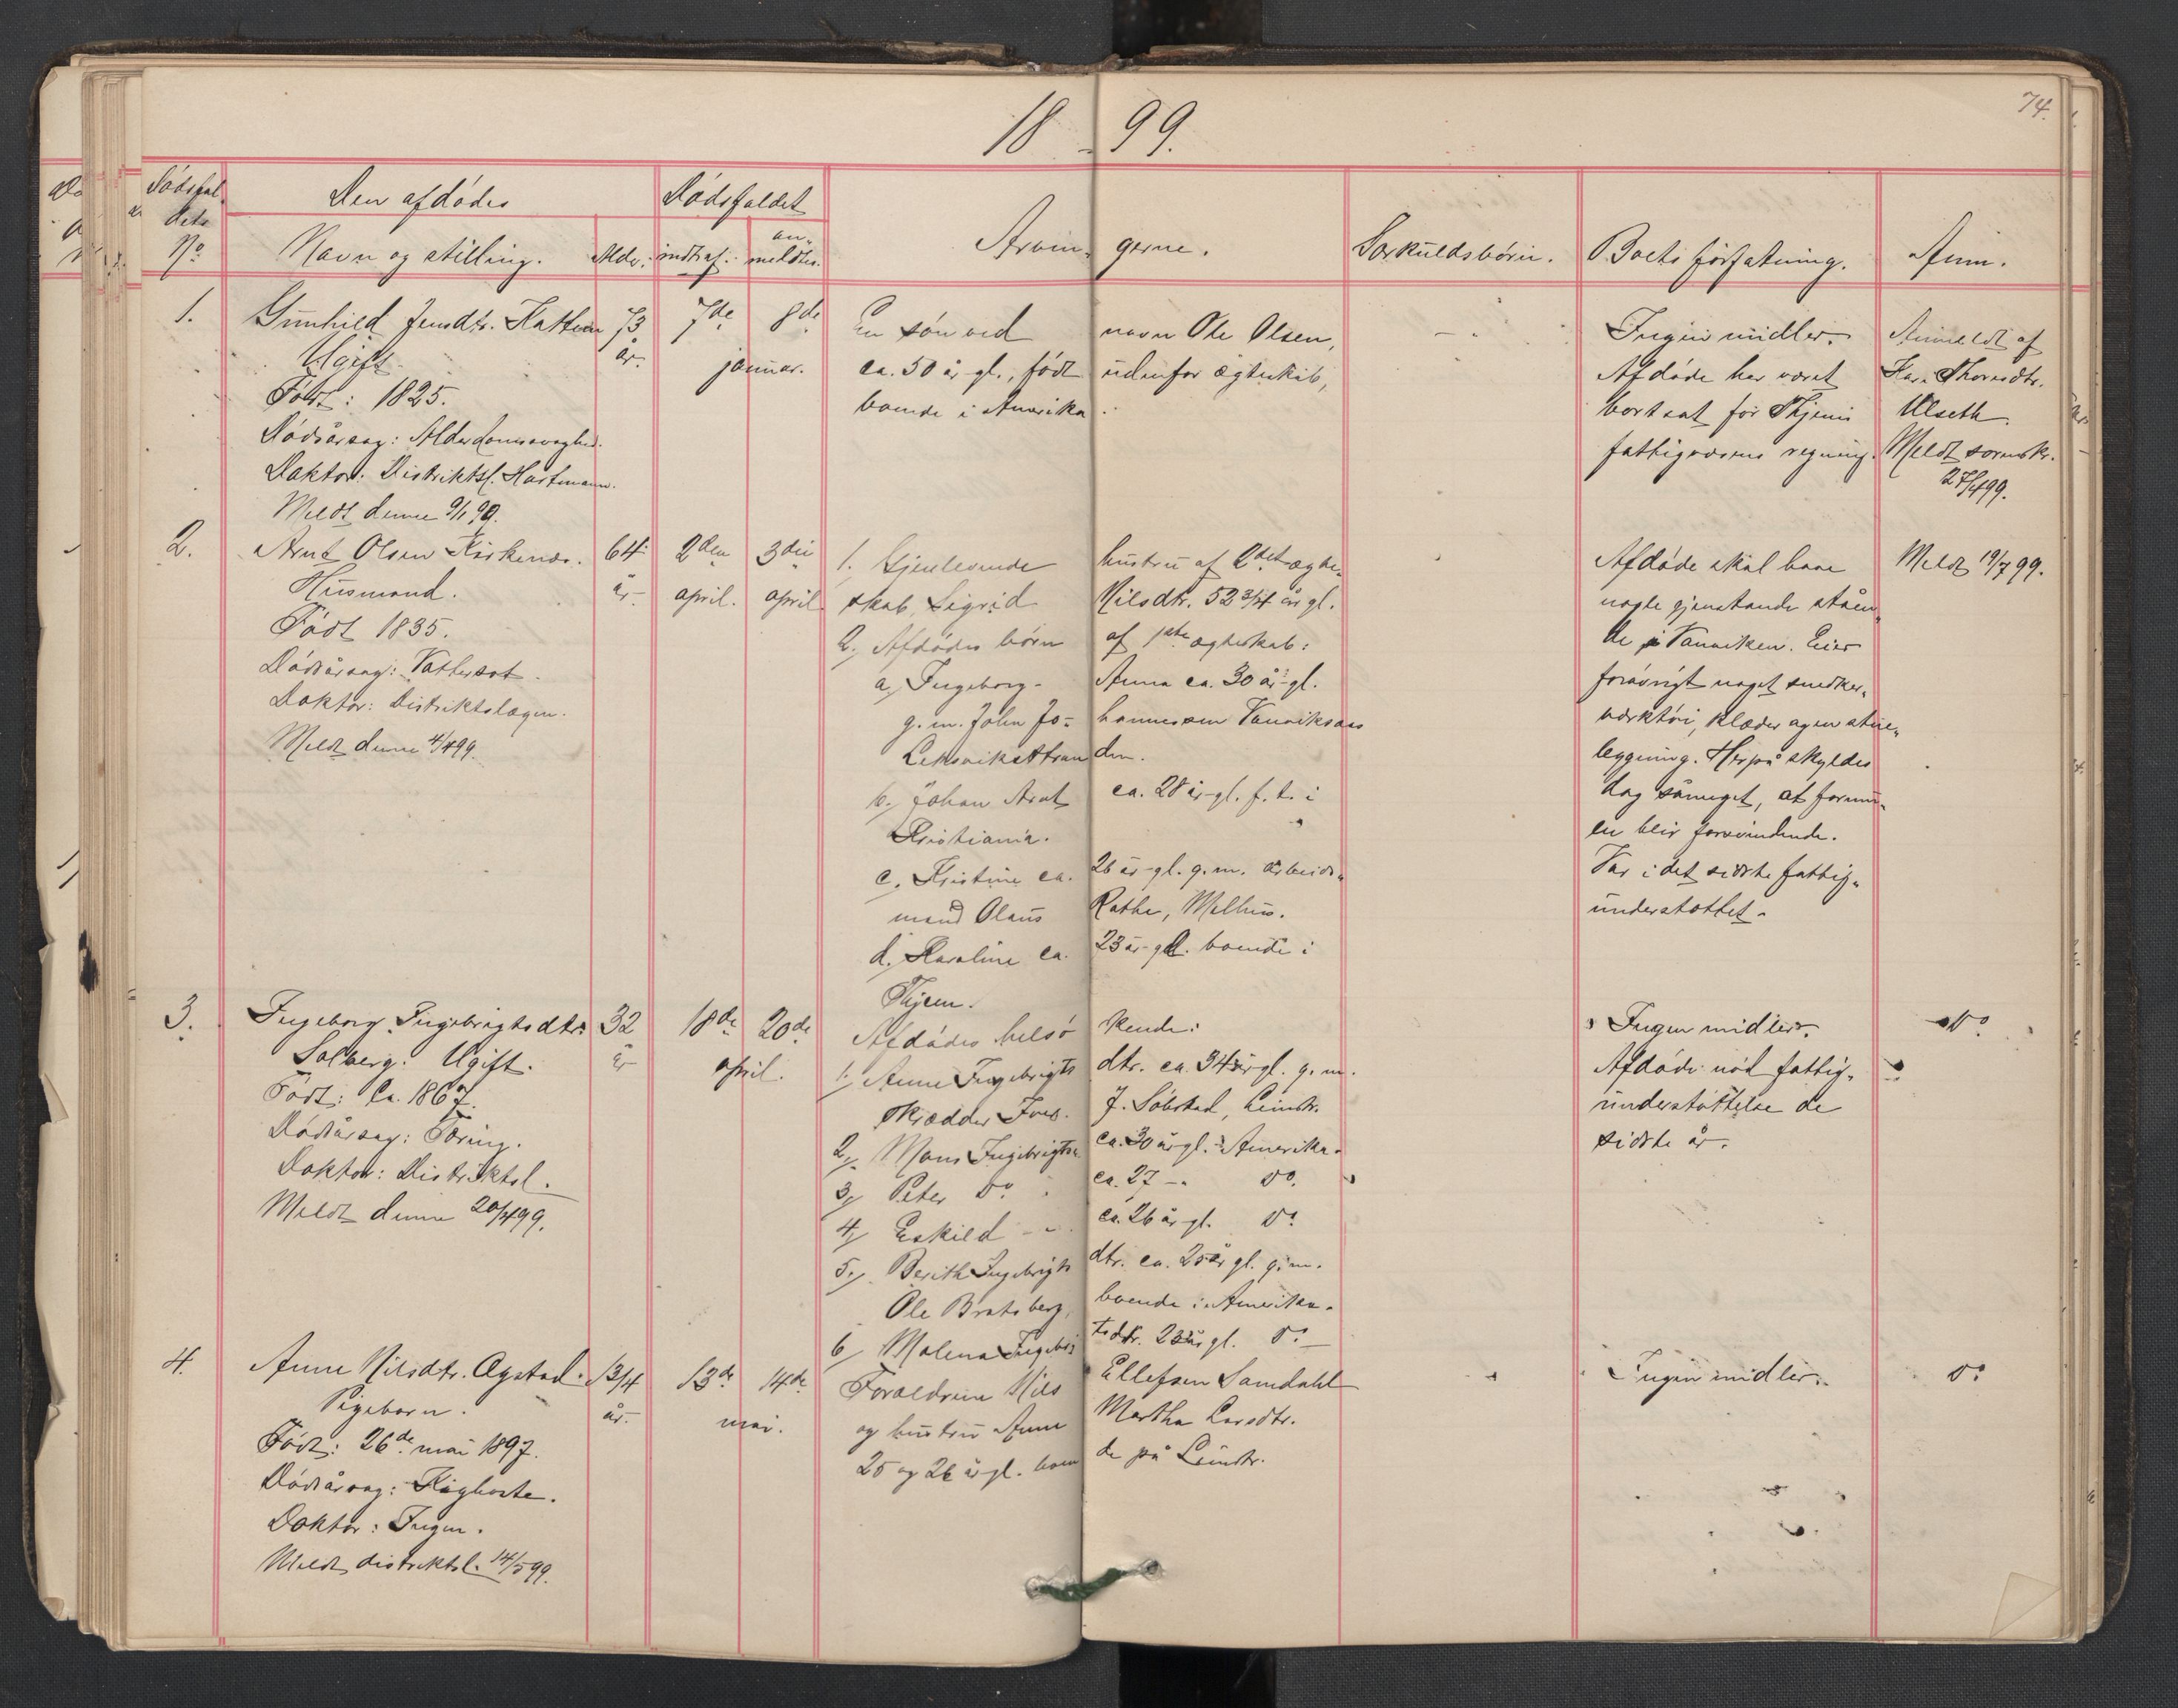 74.
18 99.
Dødsfal-
dets
No
Den afdødes
Navn og stilling.
Alder.
Dødsfaldet
indtraf.
an-
meldtes.
Arvin- gerne.
Særkuldsbørn.
Boets forfatning.
Anm.
1.
Gunhild Jensdtr. Kattem
Ugift.
Født: 1825.
Dødsårsag: Alderdomssvaghed.
Doktor: Distriktsl. Hartmann.
Meldt denne 9/1 99.
73
år.
7de
8de
januar.
En søn ved navn Ole Olsen,
ca. 50 år gl., født udenfor ægteskab,
boende i Amerika.
Ingen midler.
Afdøde har været
bortsat for Thjems
fattigvæsens regning.
Anmeldt af
Kari Thorsdtr.
Ulseth.
Meldt sorenskr.
27/4 99.
2.
Arnt Olsen Kirkenæs.
Husmand.
Født 1835.
Dødsårsag: Vattersot.
Doktor: Distriktslægen.
Meldt denne 4/4 99.
64
år.
2den
april.
3die
april.
1. Gjenlevende hustru af 2det ægte-
skab Sigrid Nilsdtr. 52 3/4 år gl.
2. Afdødes børn af 1ste ægteskab:
a, Ingeborg Anna ca. 30 år gl.
g. m. John Jo- hannessen Vanviksaas
Leksvikstran den.
b, Johan Arnt ca. 28 år gl. f. t. i
Kristiania.
c, Kristine ca. 26 år gl. g. m. arbeids-
mand Olaus Rathe, Melhus.
d, Karoline ca. 23 år gl. boende i
Thjem.
Afdøde skal have
nogle gjenstande ståen-
de i Vanviken. Eier
forøvrigt noget snedker-
værktøi, klæder og en stue-
bygning. Herpå skyldes
dog såmeget, at formu-
en blir forsvindende.
Var i det sidste fattig-
understøttet.
Meldt 19/7 99.
3.
Ingeborg Ingebrigtsdtr.
Solberg. Ugift.
Født: Ca. 1867.
Dødsårsag: Tæring.
Doktor: Distriktsl.
Meldt denne 20/4 99.
32
år
18de
20de
april.
Afdødes helsø kende:
1, Anne Ingebrigts dtr. ca. 34 år gl. g. m.
skrædder Ivar J. Solstad, Leinstr.
2, Mons Ingebrigtsn. ca. 30 år gl. Amerika.
3, Peter Do ca. 27 -" Do.
4, Eskild - " ca. 26 år gl. Do
5, Berith Ingebrigts dtr. ca. 25 år gl. g. m.
Ole Bratsberg, boende i Amerika.
6, Malena Ingebrig tsdtr. 23 år gl. Do -
Ingen midler.
Afdøde nød fattig-
understøttelse de
sidste år.
Do
4.
Anne Nilsdtr. Øgstad.
Pigebarn.
Født: 26de mai 1897.
Dødsårsag: Kighoste.
Doktor: Ingen.
Meldt distriktsl. 14/5 99.
1 3/4
år.
13de
14de
mai.
Forældrene Nils Ellefsen Samdahl
og hustru Anne Martha Larsdtr.
25 og 26 år gl. boen de på Leinstr.
Ingen midler.
Do